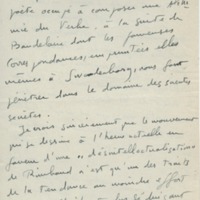 poète occupé à composer une
du Verbe, à la suite de
Baudelaire dont les fameuses
Correspondances, empruntées elles
mêmes à Swedenborg, nous font
pénétrer dans le domaine des
secrètes.
Je crois sincèrement que le mouvement
qui se dessine à l'heure actuelle en
faveur d'une « désintellectualisation »
de Rimbaud n'est qu'un des traits
de la tendance au moindre effort